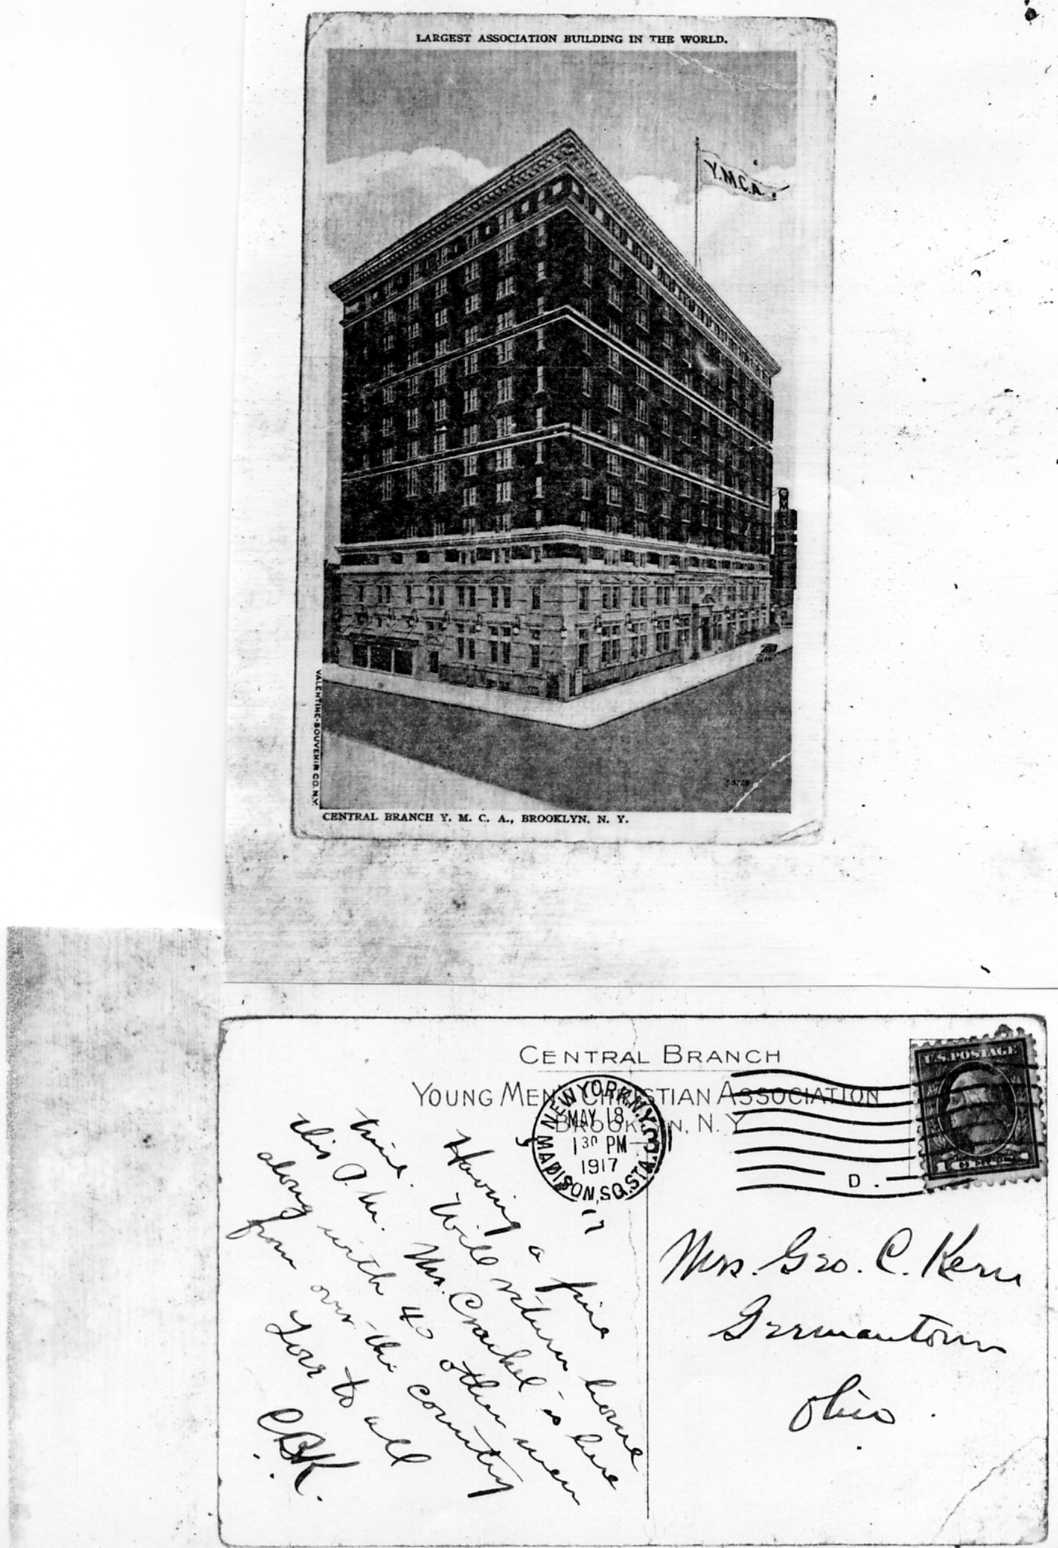 LARGEST ASSOCIATION BUILDING IN THE WORLD.
Y.M.C.A.
VALENTINE-SOUVENIR CO. N.Y.
CENTRAL BRANCH Y. M. C. A., BROOKLYN, N. Y.
CENTRAL BRANCH
YOUNG MEN'S CHRISTIAN ASSOCIATION
BROOKLYN, N. Y.
NEW YORK, N.Y.
MAY 18
1 30 PM
1917
MADISON, SQ. STA.
D.
U.S. POSTAGE
Having a fine
time. Will return home
this P.M. Mr. is here
along with 40 other men
from over the country
Love to all
CBK.
Mrs. Geo. C. Kern
Germantown
Ohio.